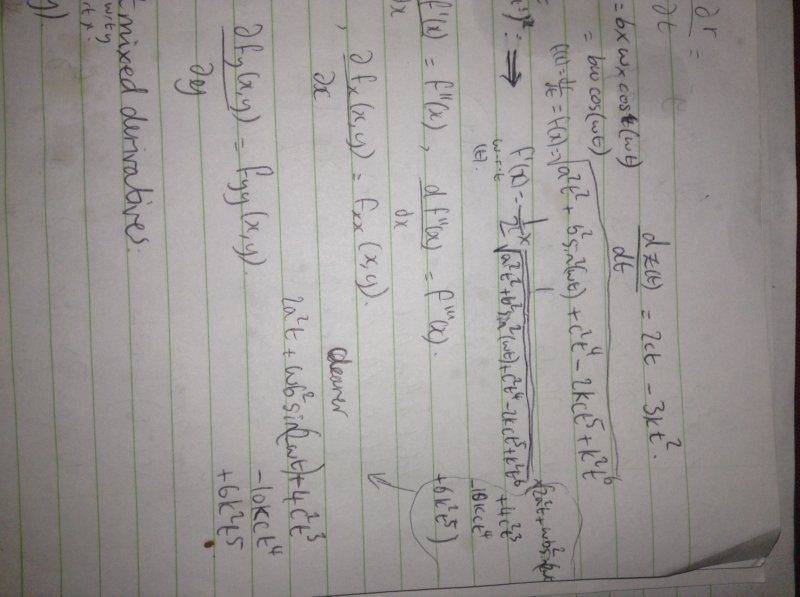 ∂r/∂t =
= b × ω × cos(ωt)
= bω cos(ωt)
dz(t)/dt = 2ct - 3kt².
= f(x) = √(a²t² + b²sin²(ωt) + c²t⁴ - 2kct⁵ + k²t⁶
⇒ f'(x) = 1/2 × 1/√(a²t² + b²sin²(ωt) + c²t⁴ - 2kct⁵ + k²t⁶
w.r.t
(t).
+ 4c²t³
- 10kct⁴
+ 6k²t⁵)
f'(x) = f''(x), df''(x)/dx = f'''(x).
, ∂fx(x,y)/∂x = fxx(x,y).
clearer
2a²t + ωb²sin(2ωt) + 4c²t³
- 10kct⁴
+ 6k²t⁵
∂fy(x,y)/∂y = fyy(x,y).
mixed derivatives.
w.r.t y